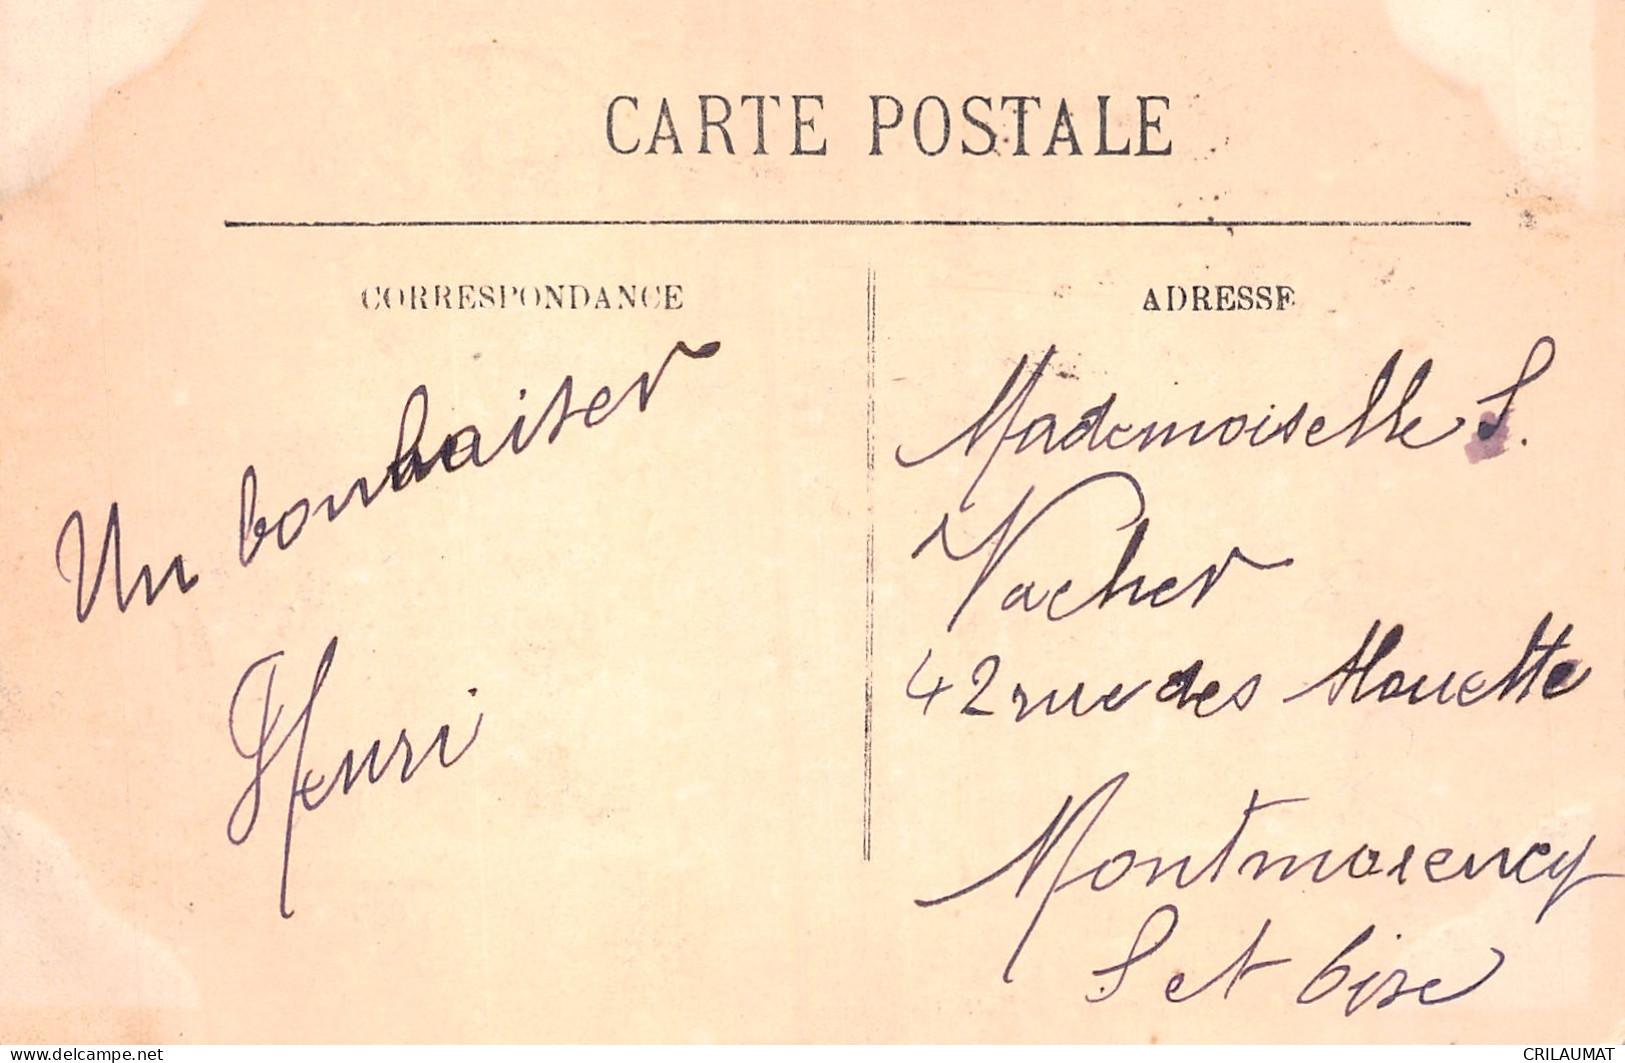 CARTE POSTALE
CORRESPONDANCE
ADRESSE
Un bon baiser
Henri
Mademoiselle S.
Vacher
42 rue des Alouette
Montmorency
S et Oise
www.delcampe.net
CRILAUMAT